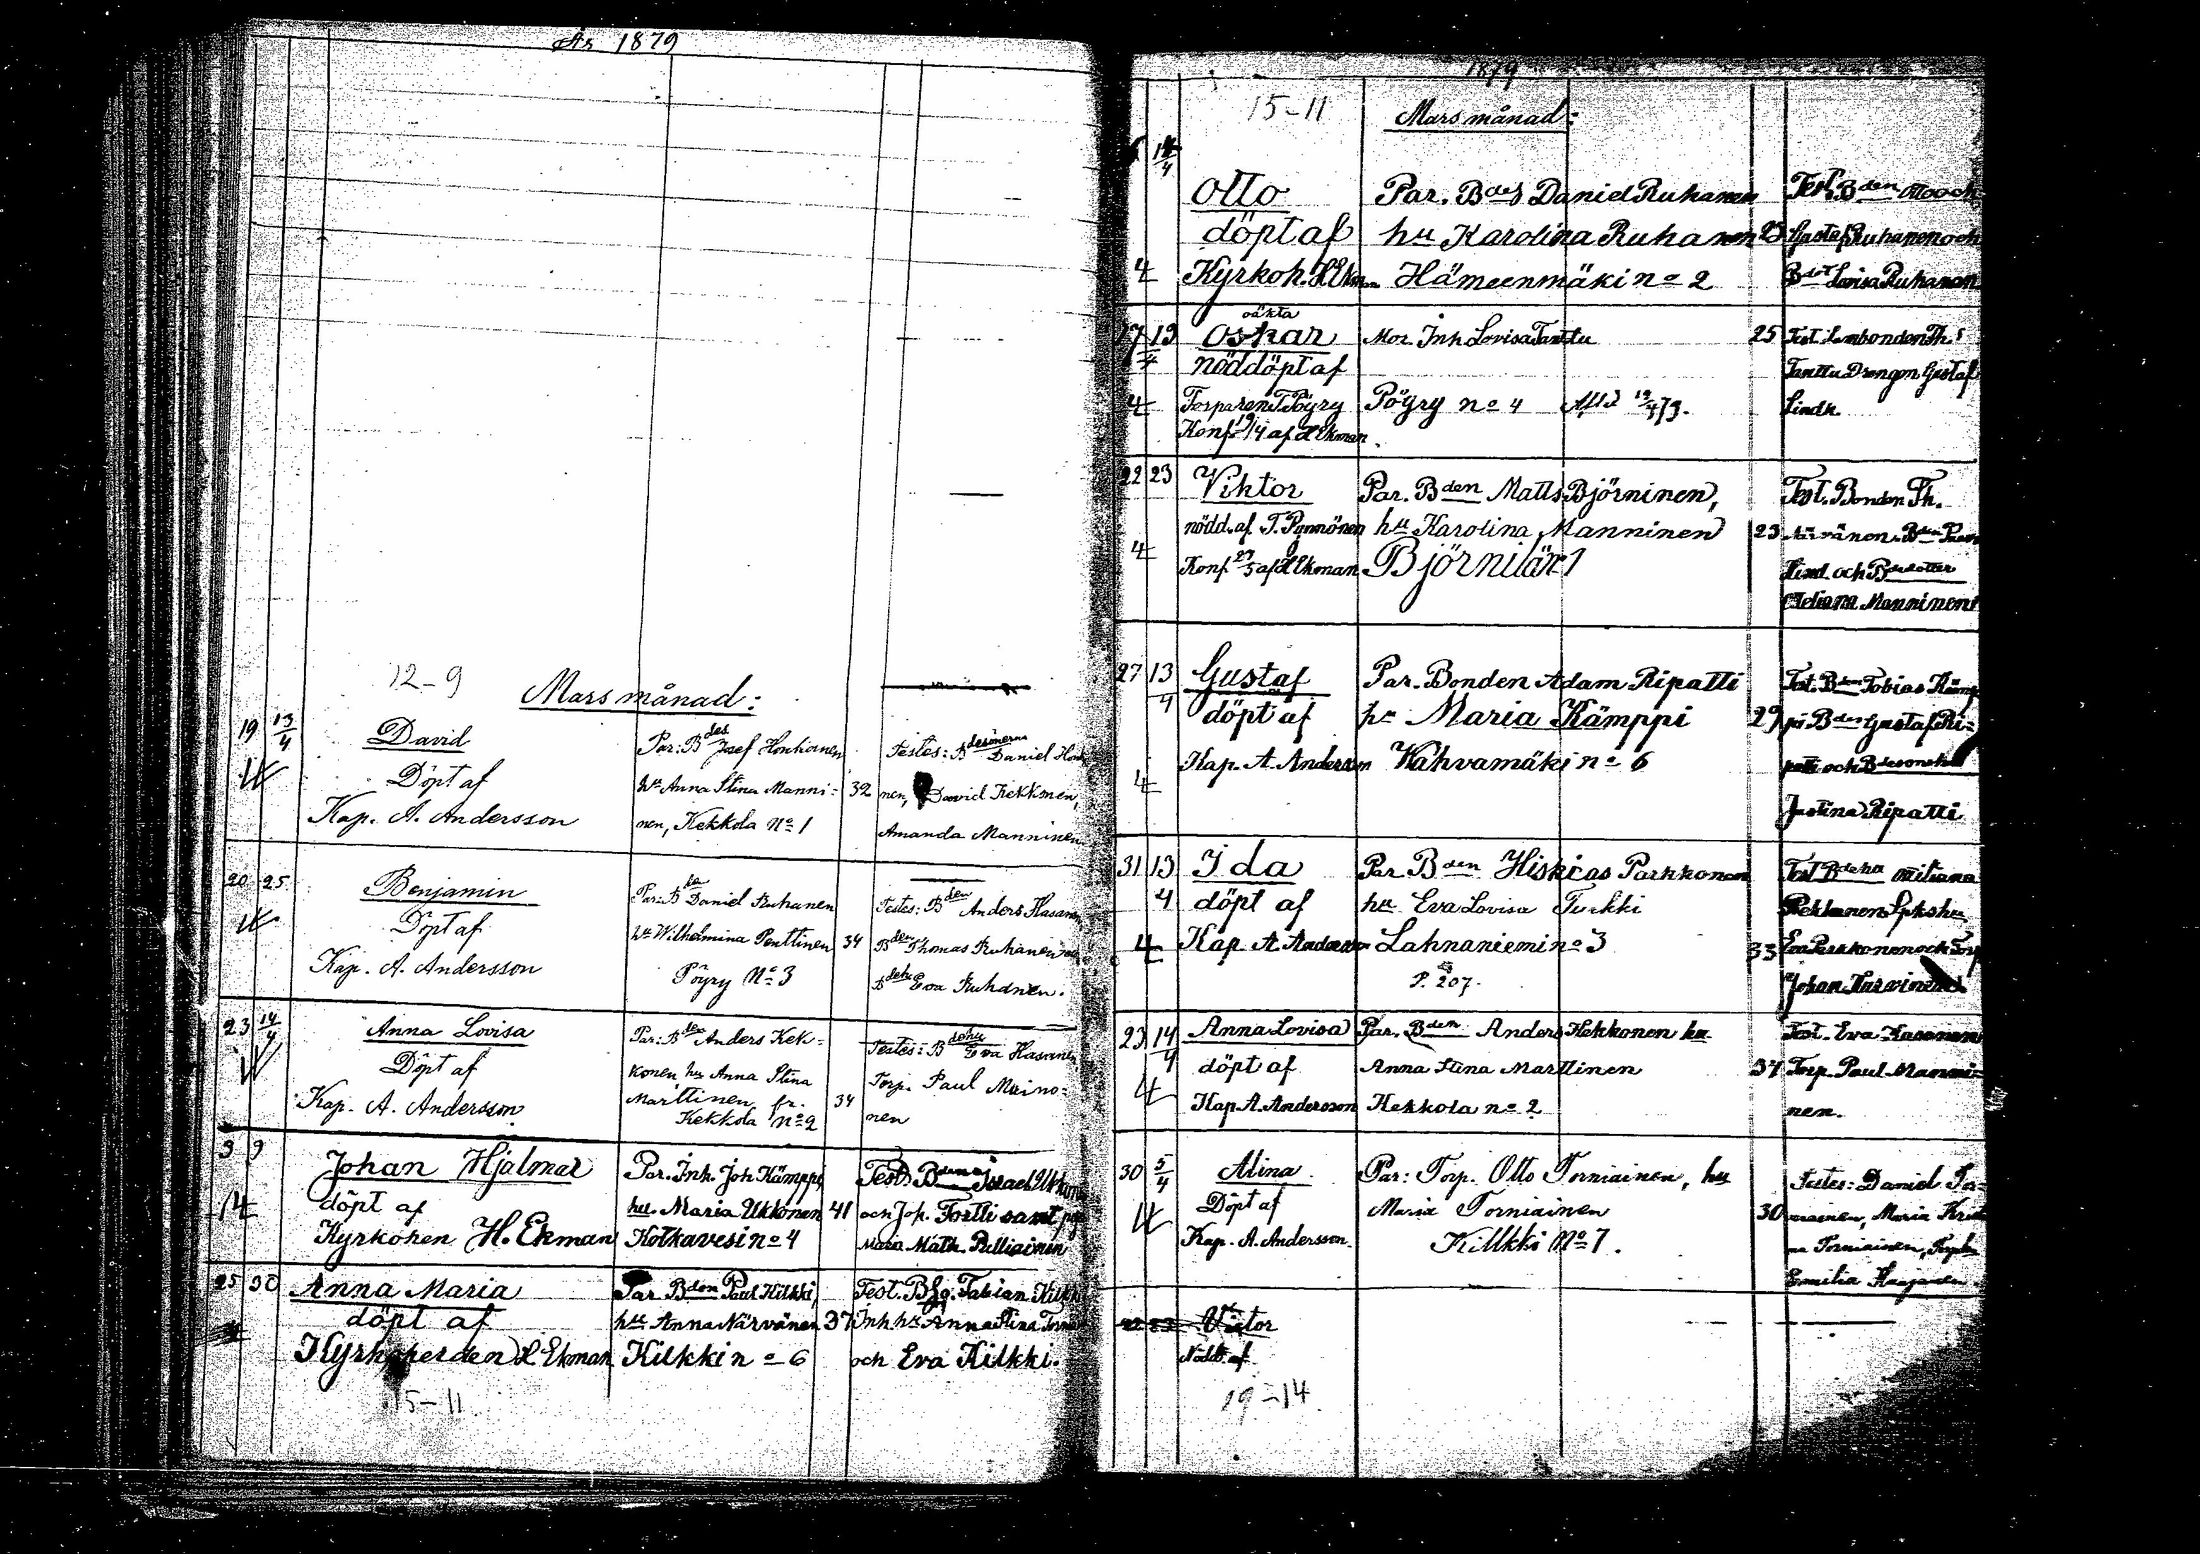 År 1879
12-9
Mars månad:
19 13/4 David
Döpt af
Kap. A. Andersson
Par: Bdes Josef Honkanen
hu Anna Stina Manni- 32
nen, Kekkola No 1
Testes: Bdesönerna Daniel Honka
nen, David Kekkonen,
Amanda Manninen
20 25 Benjamin
Döpt af
Kap. A. Andersson
Par: Bde Daniel Ruhanen
hu Wilhelmina Penttinen 34
Pöyry No 3
Testes: Bden Anders Hasanen
Bden Thomas Ruhanen
Bdehu Eva Ruhanen.
23 14/4 Anna Lovisa
Döpt af
Kap. A. Andersson
Par: Bden Anders Kek-
konen hu Anna Stina
Marttinen fr. 34
Kekkola No 2
Testes: Bdehu Eva Hasanen
Torp. Paul Maino-
nen
9 9 Johan Hjalmar
döpt af
Kyrkoherden H. Ekman
Par. Inh. Joh Kämppi,
hu. Maria Ukkonen 41
Kotkavesi no 4
Test. Israel Ukkonen
och Joh. Tortti samt
Maria Math. Pulliainen
25 30 Anna Maria
döpt af
Kyrkoherden H Ekman
Par Bden Paul Kilkki,
hu Anna Närvänen 37
Kilkki no 6
Test. Fabian Kilkki
Inh. hu Anna Stina
och Eva Kilkki.
15-11
1879
15-11 Mars månad:
14/4
Otto
döpt af
4 Kyrkoh. H Ekman
Par. Bdes Daniel Ruhanen
hu Karolina Ruhanen 23
Hämeenmäki no 2
Test. Bden Otto och
Gustaf Ruhanen och
Lovisa Ruhanen
17 19/4 oäkta
Oskar
nöddöpt af
4 Torparen T Pöyry
Konf. 19/4 af H Ekman.
Mor Inh Lovisa Tanttu 25
Pöyry no 4 Att 19/4 79.
Test. Lambonden Th.
Tanttu Drengen Gustaf
Lindh.
22 23 Viktor
nödd. af. T. Ponnönen
4 Konf. af H Ekman
Par. Bden Matts Björninen,
hu Karolina Manninen 23
Björnilä n 1
Test. Bonden Th.
Närvänen
Lind och Bdedotter
Manninen
27 13/4 Gustaf
döpt af
4 Kap. A Andersson
Par. Bonden Adam Ripatti
hu Maria Kämppi 29
Kahvamäki no 6
Test. Bden Tobias Kämp
pi Bdes Gustaf Ri-
patti och
Justina Ripatti
31 13/4 Ida
döpt af
4 Kap A Andersson
Par Bden Hiskias Parkkonen
hu Eva Lovisa Turkki
Lahnaniemi no 3 33
P. 207.
Test Bdehu
Eva Parkkonen och Torp
Johan
23 14/4 Anna Lovisa
döpt af
4 Kap A. Andersson
Par. Bden Anders Kekkonen hu
Anna Stina Marttinen 37
Kekkola no 2
Test. Eva Hasanen
Torp. Paul Manni-
nen.
30 5/4 Alina
Döpt af
4 Kap. A. Andersson.
Par: Torp. Otto Torniainen, hu
Maria Torniainen 30
Kilkki No 7.
Testes: Daniel Tor-
niainen, Maria Kristi
na Torniainen,
Emilia
22 23 Victor
Nödd. af
19-14